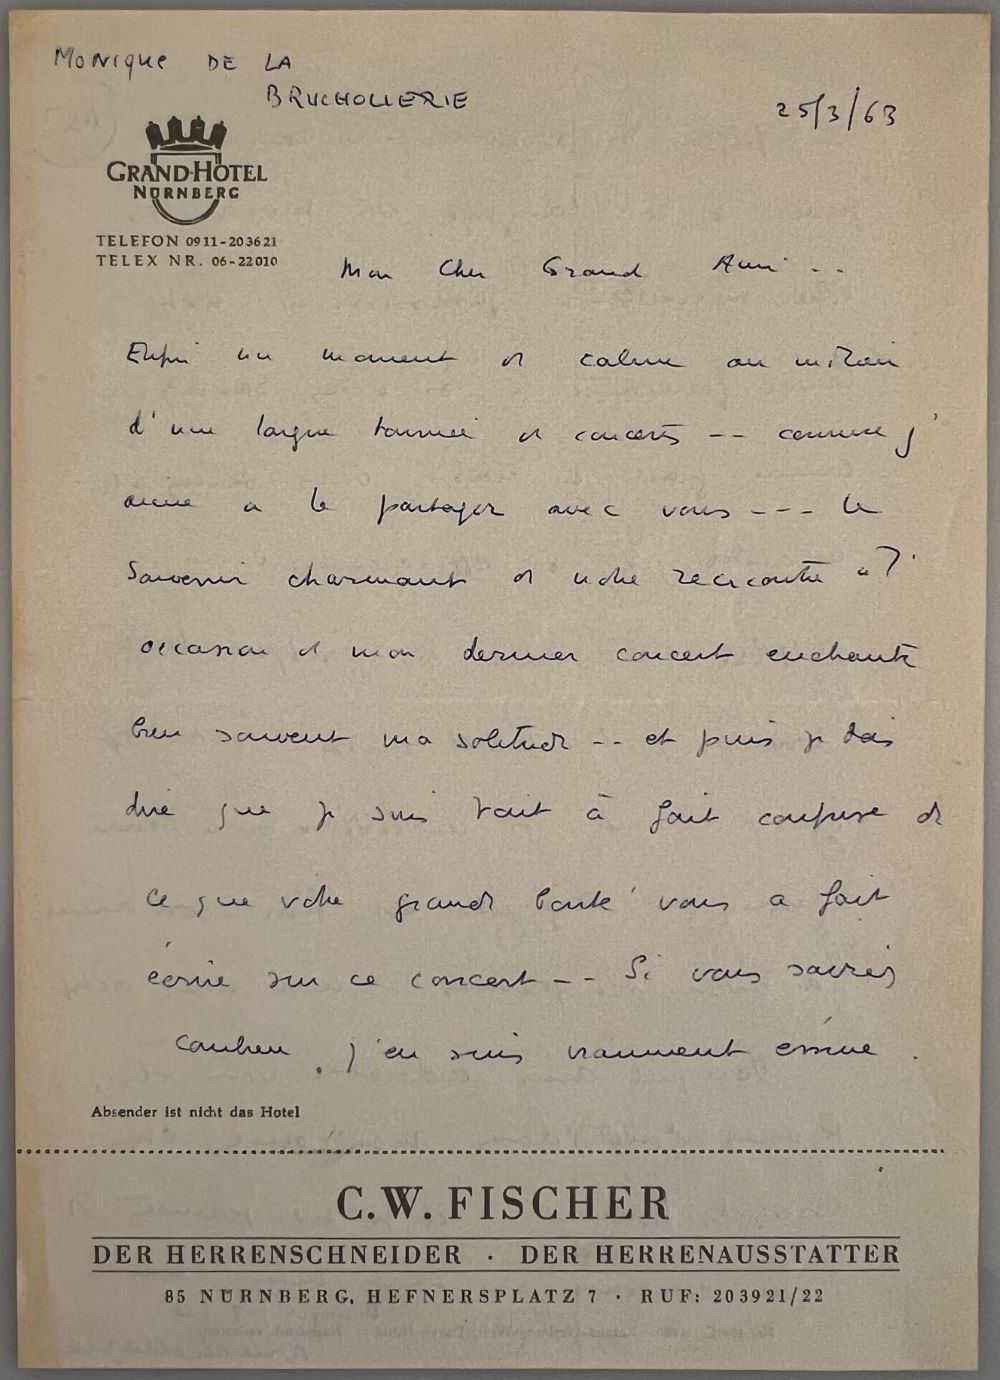 Monique DE LA
BRUCHOLLERIE
25/3/63
GRAND-HOTEL
NÜRNBERG
TELEFON 0911-203621
TELEX NR. 06-22010
Mon Cher Grand Ami . .
Enfin un moment de calme au milieu
d'une longue tournée de concerts -- comme j'
aime a le partager avec vous --- le
souvenir charmant de notre rencontre a l'
occasion de mon dernier concert enchante
bien souvent ma solitude -- et puis je dois
dire que je suis tout à fait confuse de
ce que votre grande bonté vous a fait
écrire sur ce concert -- Si vous saviez
combien j'en suis vraiment émue .
Absender ist nicht das Hotel
C.W. FISCHER
DER HERRENSCHNEIDER · DER HERRENAUSSTATTER
85 NÜRNBERG, HEFNERSPLATZ 7 · RUF: 203921/22